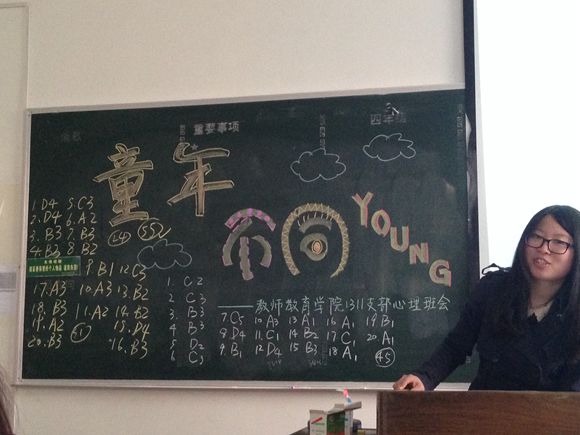 重要事项
童年
YOUNG
——教师教育学院1311支部心理班会
1. D4 5. C3
2. D4 6. A2
3. B3 7. B3
4. B3 8. B2
9. B1 12. C3
17. A3 10. A3 13. B2
18. B3 11. A2 14. B2
19. A2 15. D4
20. B3 16. B3
1. C2
2 C3
3. B3
4 B3
5 D2
6 C3
7 C5 10 A3 13 A1 16 A1 19 B1
8 D4 11 C1 14 B2 17 C1 20 A1
9. B1 12 D4 15 B3 18 A1 45